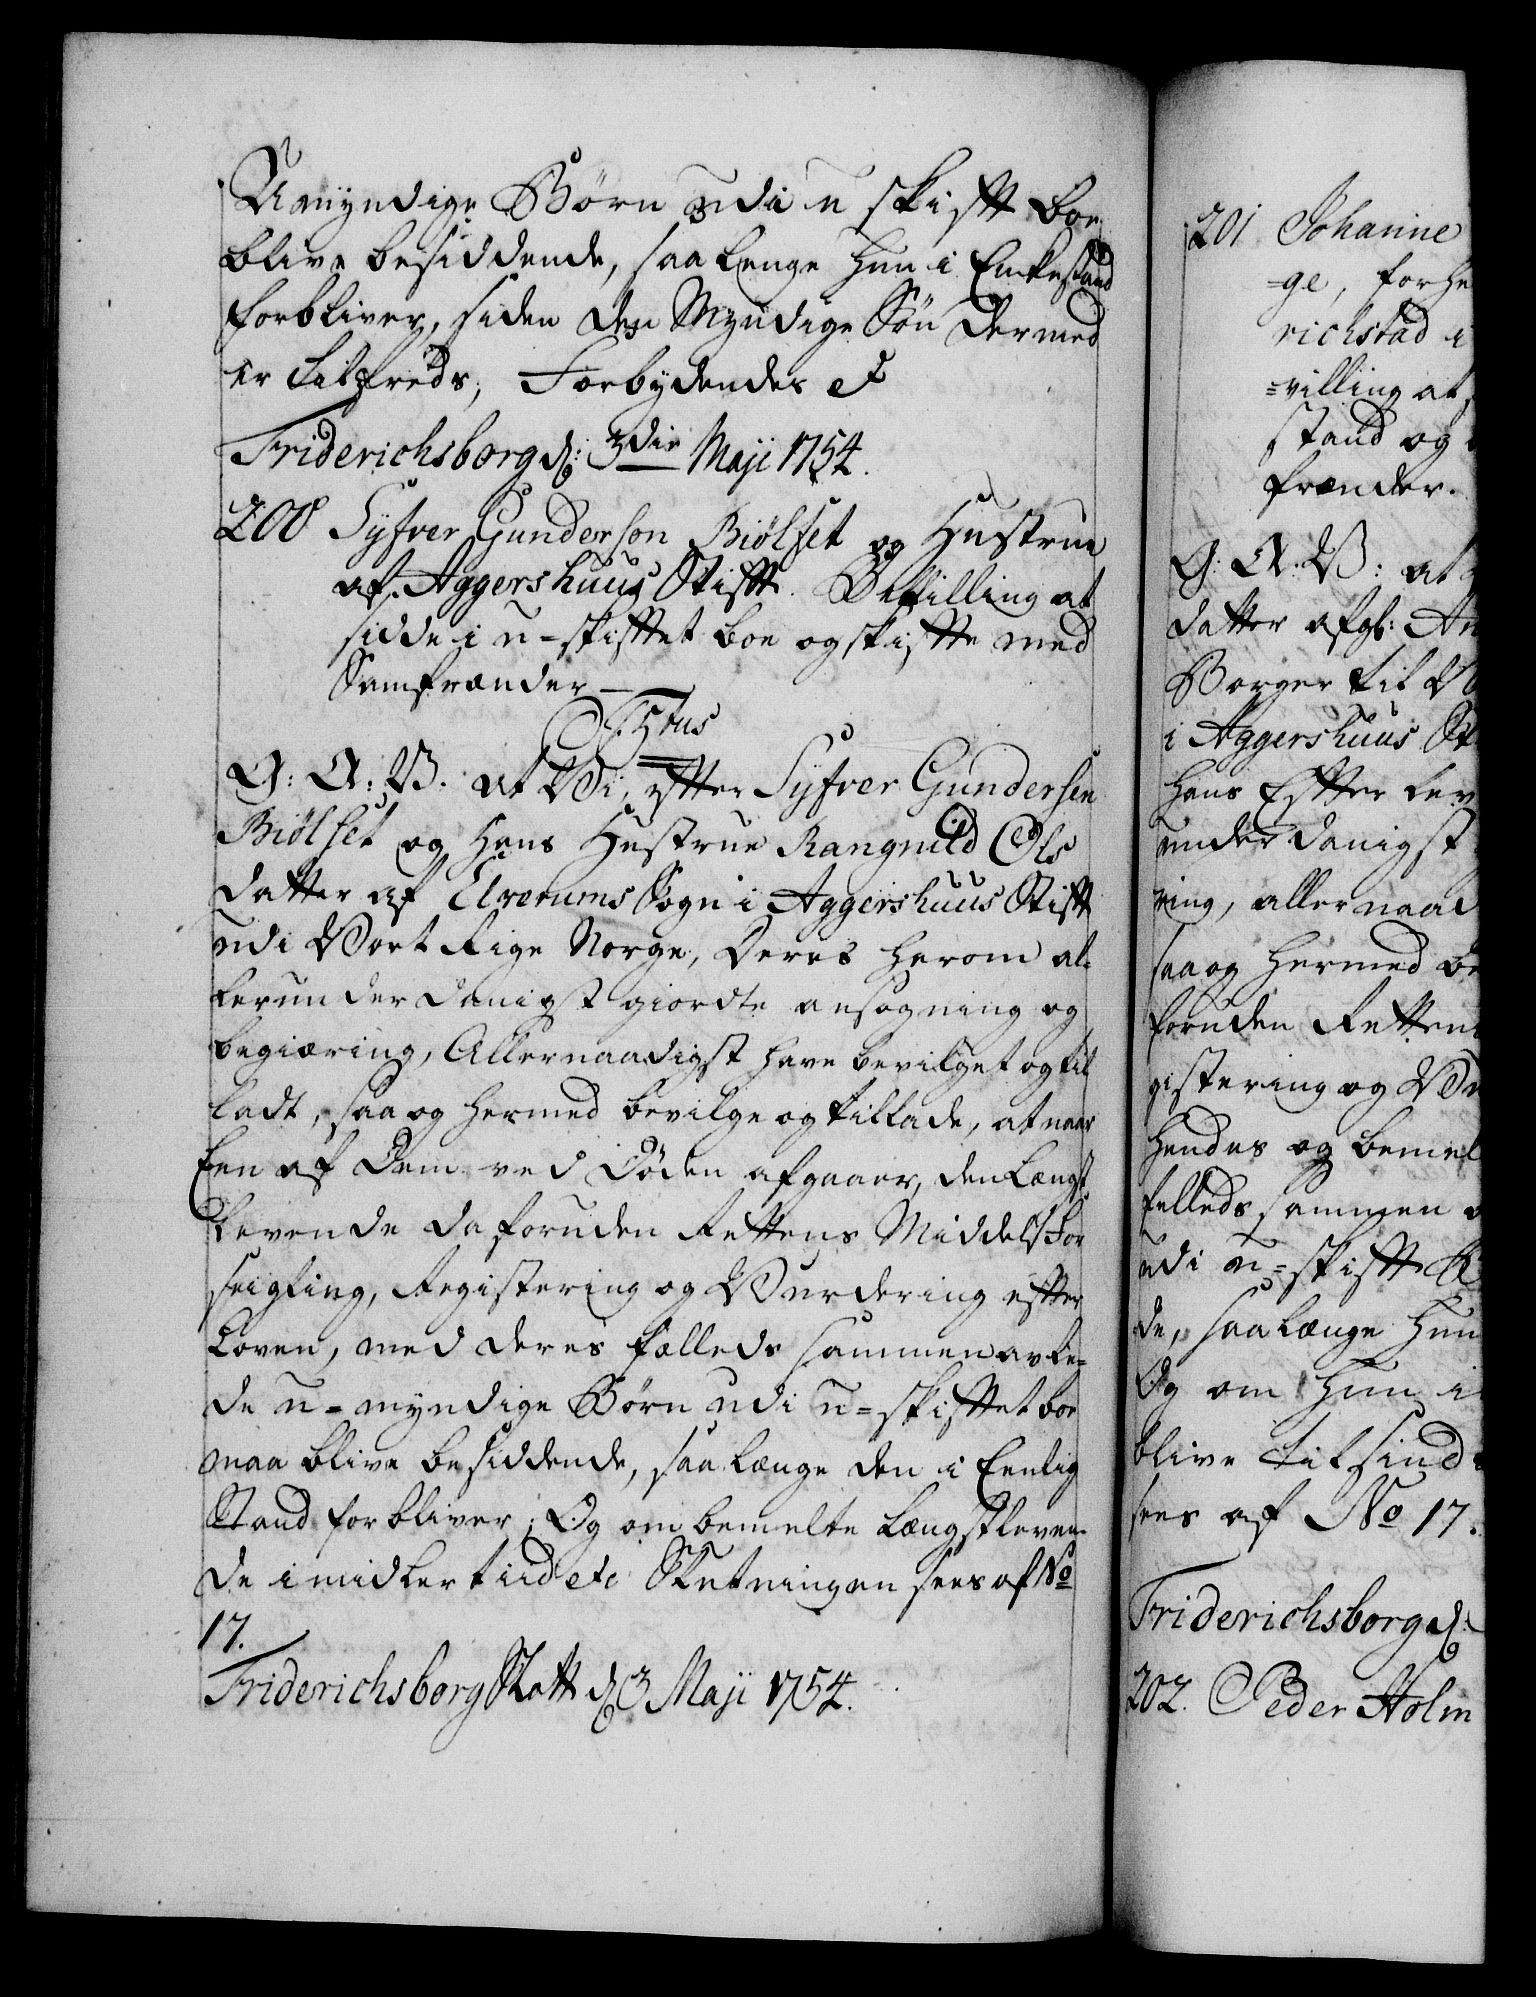 Umÿndige Børn udi u skift boe
blive besiddende, saa lenge hun i Enkestand
forbliver, siden den Myndige Søn dermed
er tilfreds, Forbydendes etc
Friderichsborg d: 3die Maji 1754.
200 Syfver Gunderson Biølset og Hustrue
af Aggershuus Stift. Bevilling at
sidde i u-skiftet boe og skifte med
Samfrænder
G: A: V. at Vi, efter Syfver Gundersen
Biølset og Hans Hustrue Rangnild Ols
datter af Elverums Sogn i Aggershuus Stift
udi Vort Rige Norge, Deres herom al-
lerunderdanigst giordte ansøgning og
begiæring, Allernaadigst have bevilget og til
ladt, saa og hermed bevilge og tillade, at naar
Een af Dem ved Døden afgaaer, den Længst
levende da foruden Rettens Middels For
seigling, Registering og Vurdering efter
Loven, med deres fælleds sammenavle-
de u-myndige Børn udi u-skiftet boe
maa blive besiddende, saa længe den i Eenlig
Stand forbliver; Og om bemelte Længstleven-
de imidlertiid etc Slutningen sees af No
17.
Friderichsborg Slott d 3 Maji 1754.
201 Johanne
-ge, forhe
richstad i
=villing at
stand og
frænder.
G: A: V: at
datter afgl: An
Borger til
i Aggershuus St
hans Efter lev
underdanigst
ring, allernaad
saa og hermed be
foruden Retten
gistering og Vu
hendes og bemel
felleds sammen
udi u-skifte B
de, saa længe hun
Og om hun i
blive til sind
sees af No 17.
Friderichsborg d:
202. Peder Holm